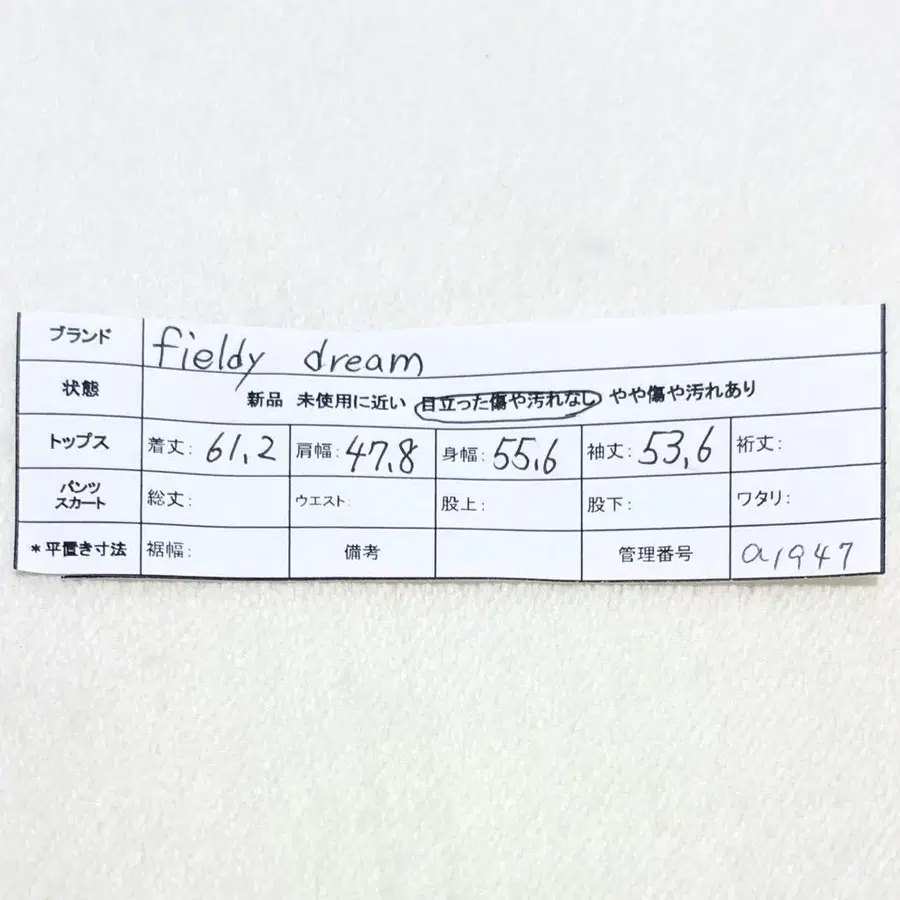 ブランド fieldy dream
状態 新品 未使用に近い 目立った傷や汚れなし やや傷や汚れあり
トップス 着丈: 61,2 肩幅: 47,8 身幅: 55,6 袖丈: 53,6 裄丈:
パンツ
スカート 総丈: ウエスト: 股上: 股下: ワタリ:
*平置き寸法 裾幅: 備考 管理番号 a1947